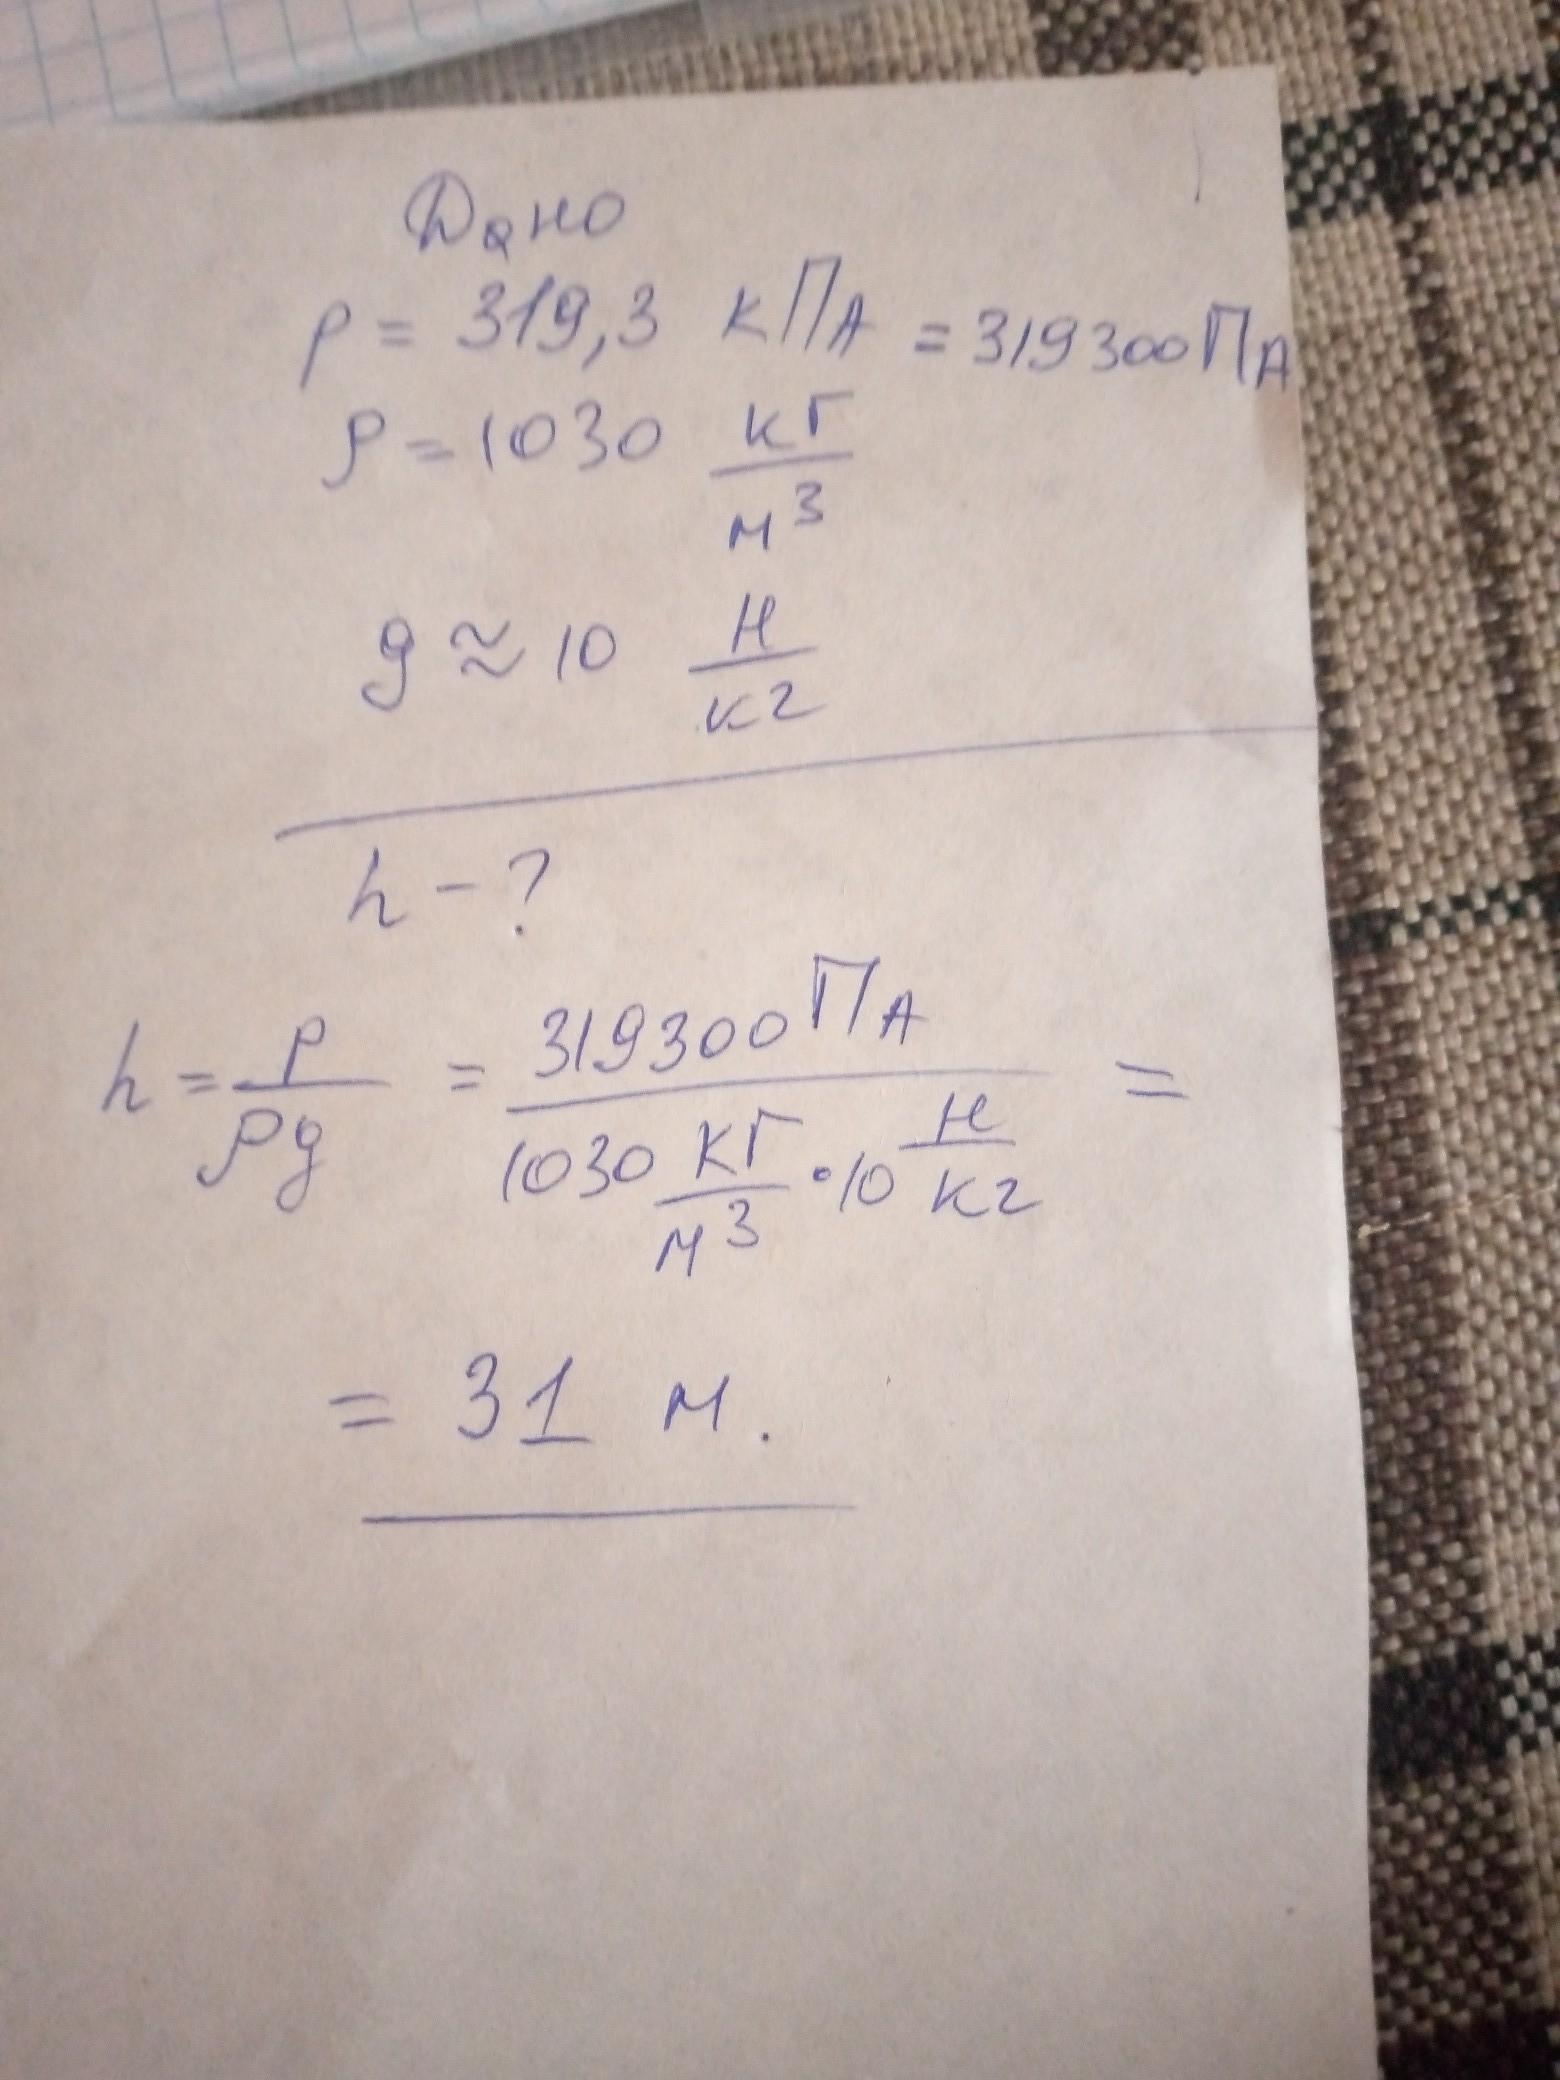 Дано
p = 319,3 кПА = 319300 ПА
ρ = 1030 кг/м³
g ≈ 10 Н/кг
h - ?
h = p/ρg = 319300 ПА / 1030 кг/м³ · 10 Н/кг =
= 31 м.